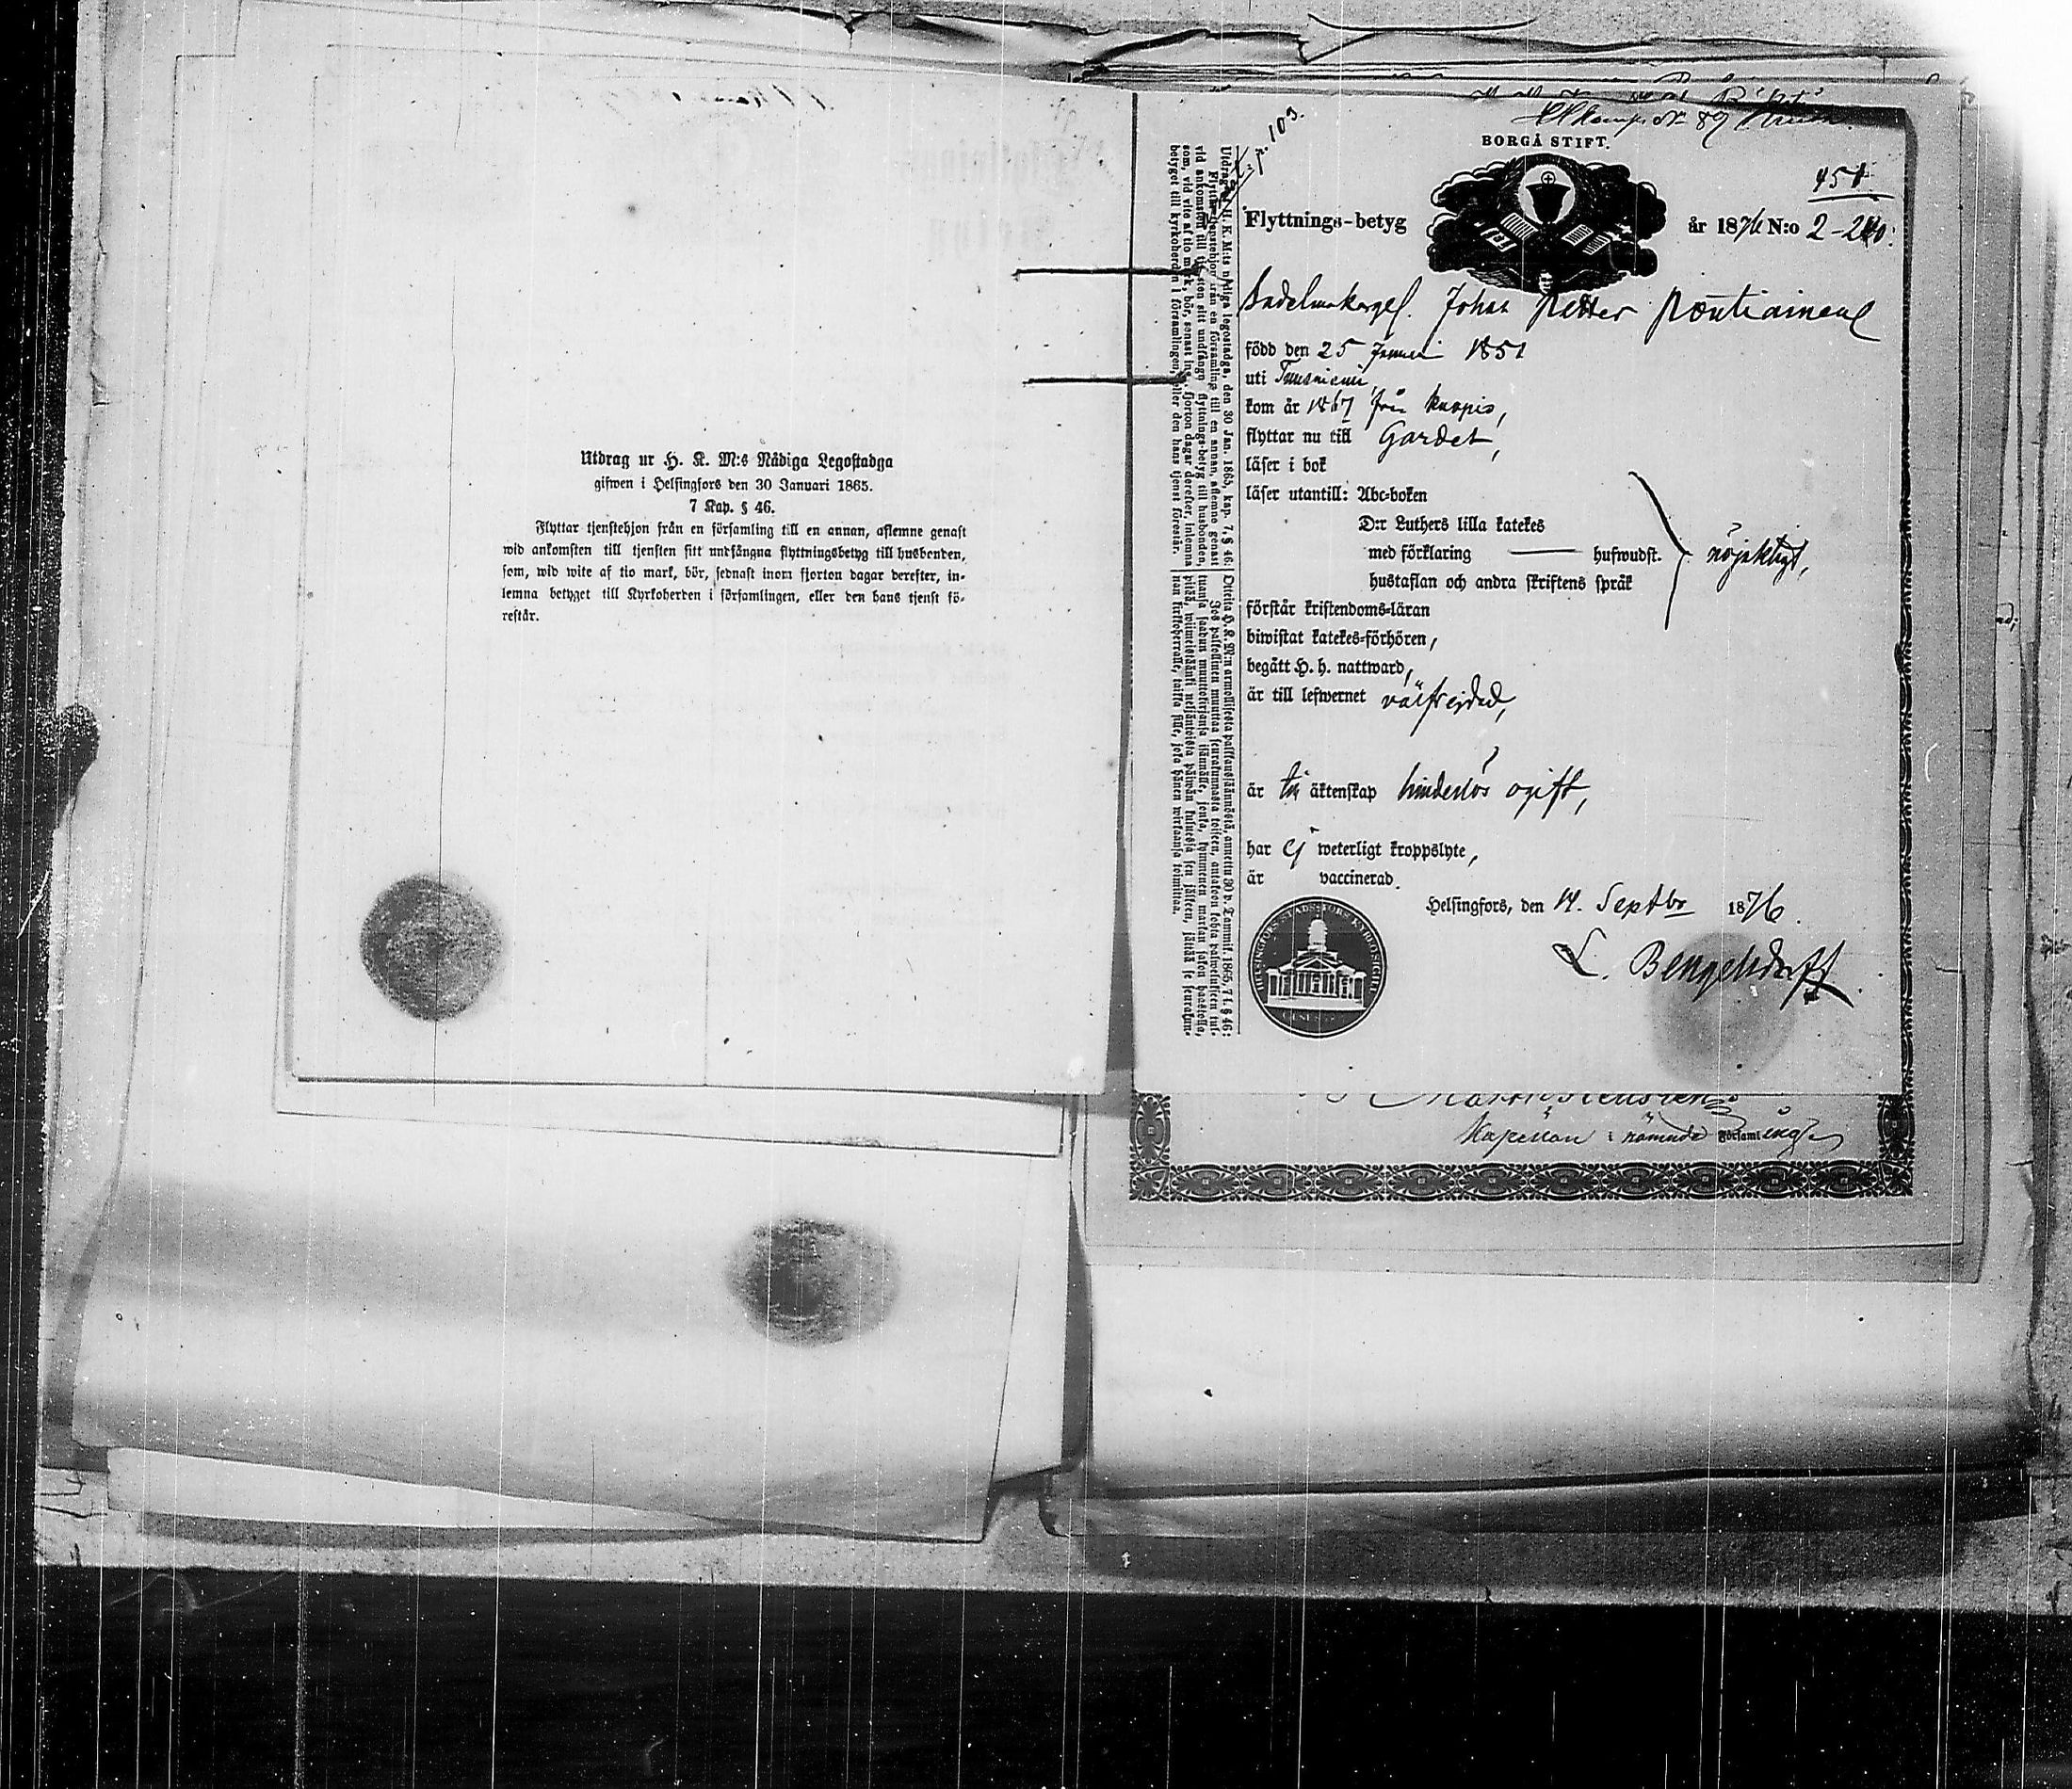 Utdrag ur H. K. M:s Nådiga Legostadga
gifwen i Helsingfors den 30 Januari 1865.
7 Kap. § 46.
Flyttar tjenstehjon från en församling till en annan, aflemne genast
wid ankomsten till tjensten sitt undfångna flyttningsbetyg till husbonden,
som, wid wite af tio mark, bör, sednast inom fjorton dagar derefter, in-
lemna betyget till Kyrkoherden i församlingen, eller den hans tjenst fö-
restår.
p. 103.
BORGÅ STIFT.
451
Flyttnings-betyg
år 1876 N:o 2-240.
Sadelmakargesf. Johan Petter Pöntiainen
född den 25 Januari 1851
uti
kom år 1867 från Kuopio,
flyttar nu till Gardet,
läser i bok
läser utantill: Abc-boken
D:r Luthers lilla katekes
med förklaring — hufwudst.
nöjaktigt,
hustaflan och andra skriftens språk
förstår kristendoms-läran
biwistat katekes-förhören,
begått H. h. nattward,
är till lefwernet välfrejdad,
är till äktenskap hinderslös ogift,
har ej weterligt kroppslyte,
är vaccinerad.
Helsingfors, den 14. Septbr 1876.
L. Bengelsdorff
Utdrag ur H. K. M:ts nådiga legostadga, den 30 Jan. 1865, kap. 7, § 46:
Flyttar tjenstehjon från en församling till en annan, aflemne genast
vid ankomsten till tjensten sitt undfångna flyttnings-betyg till husbonden,
som, vid vite af tio mark, bör, senast inom fjorton dagar derefter, inlemna
betyget till kyrkoherden i församlingen, eller den hans tjenst förestår.
Kapellan i nämnda Församling